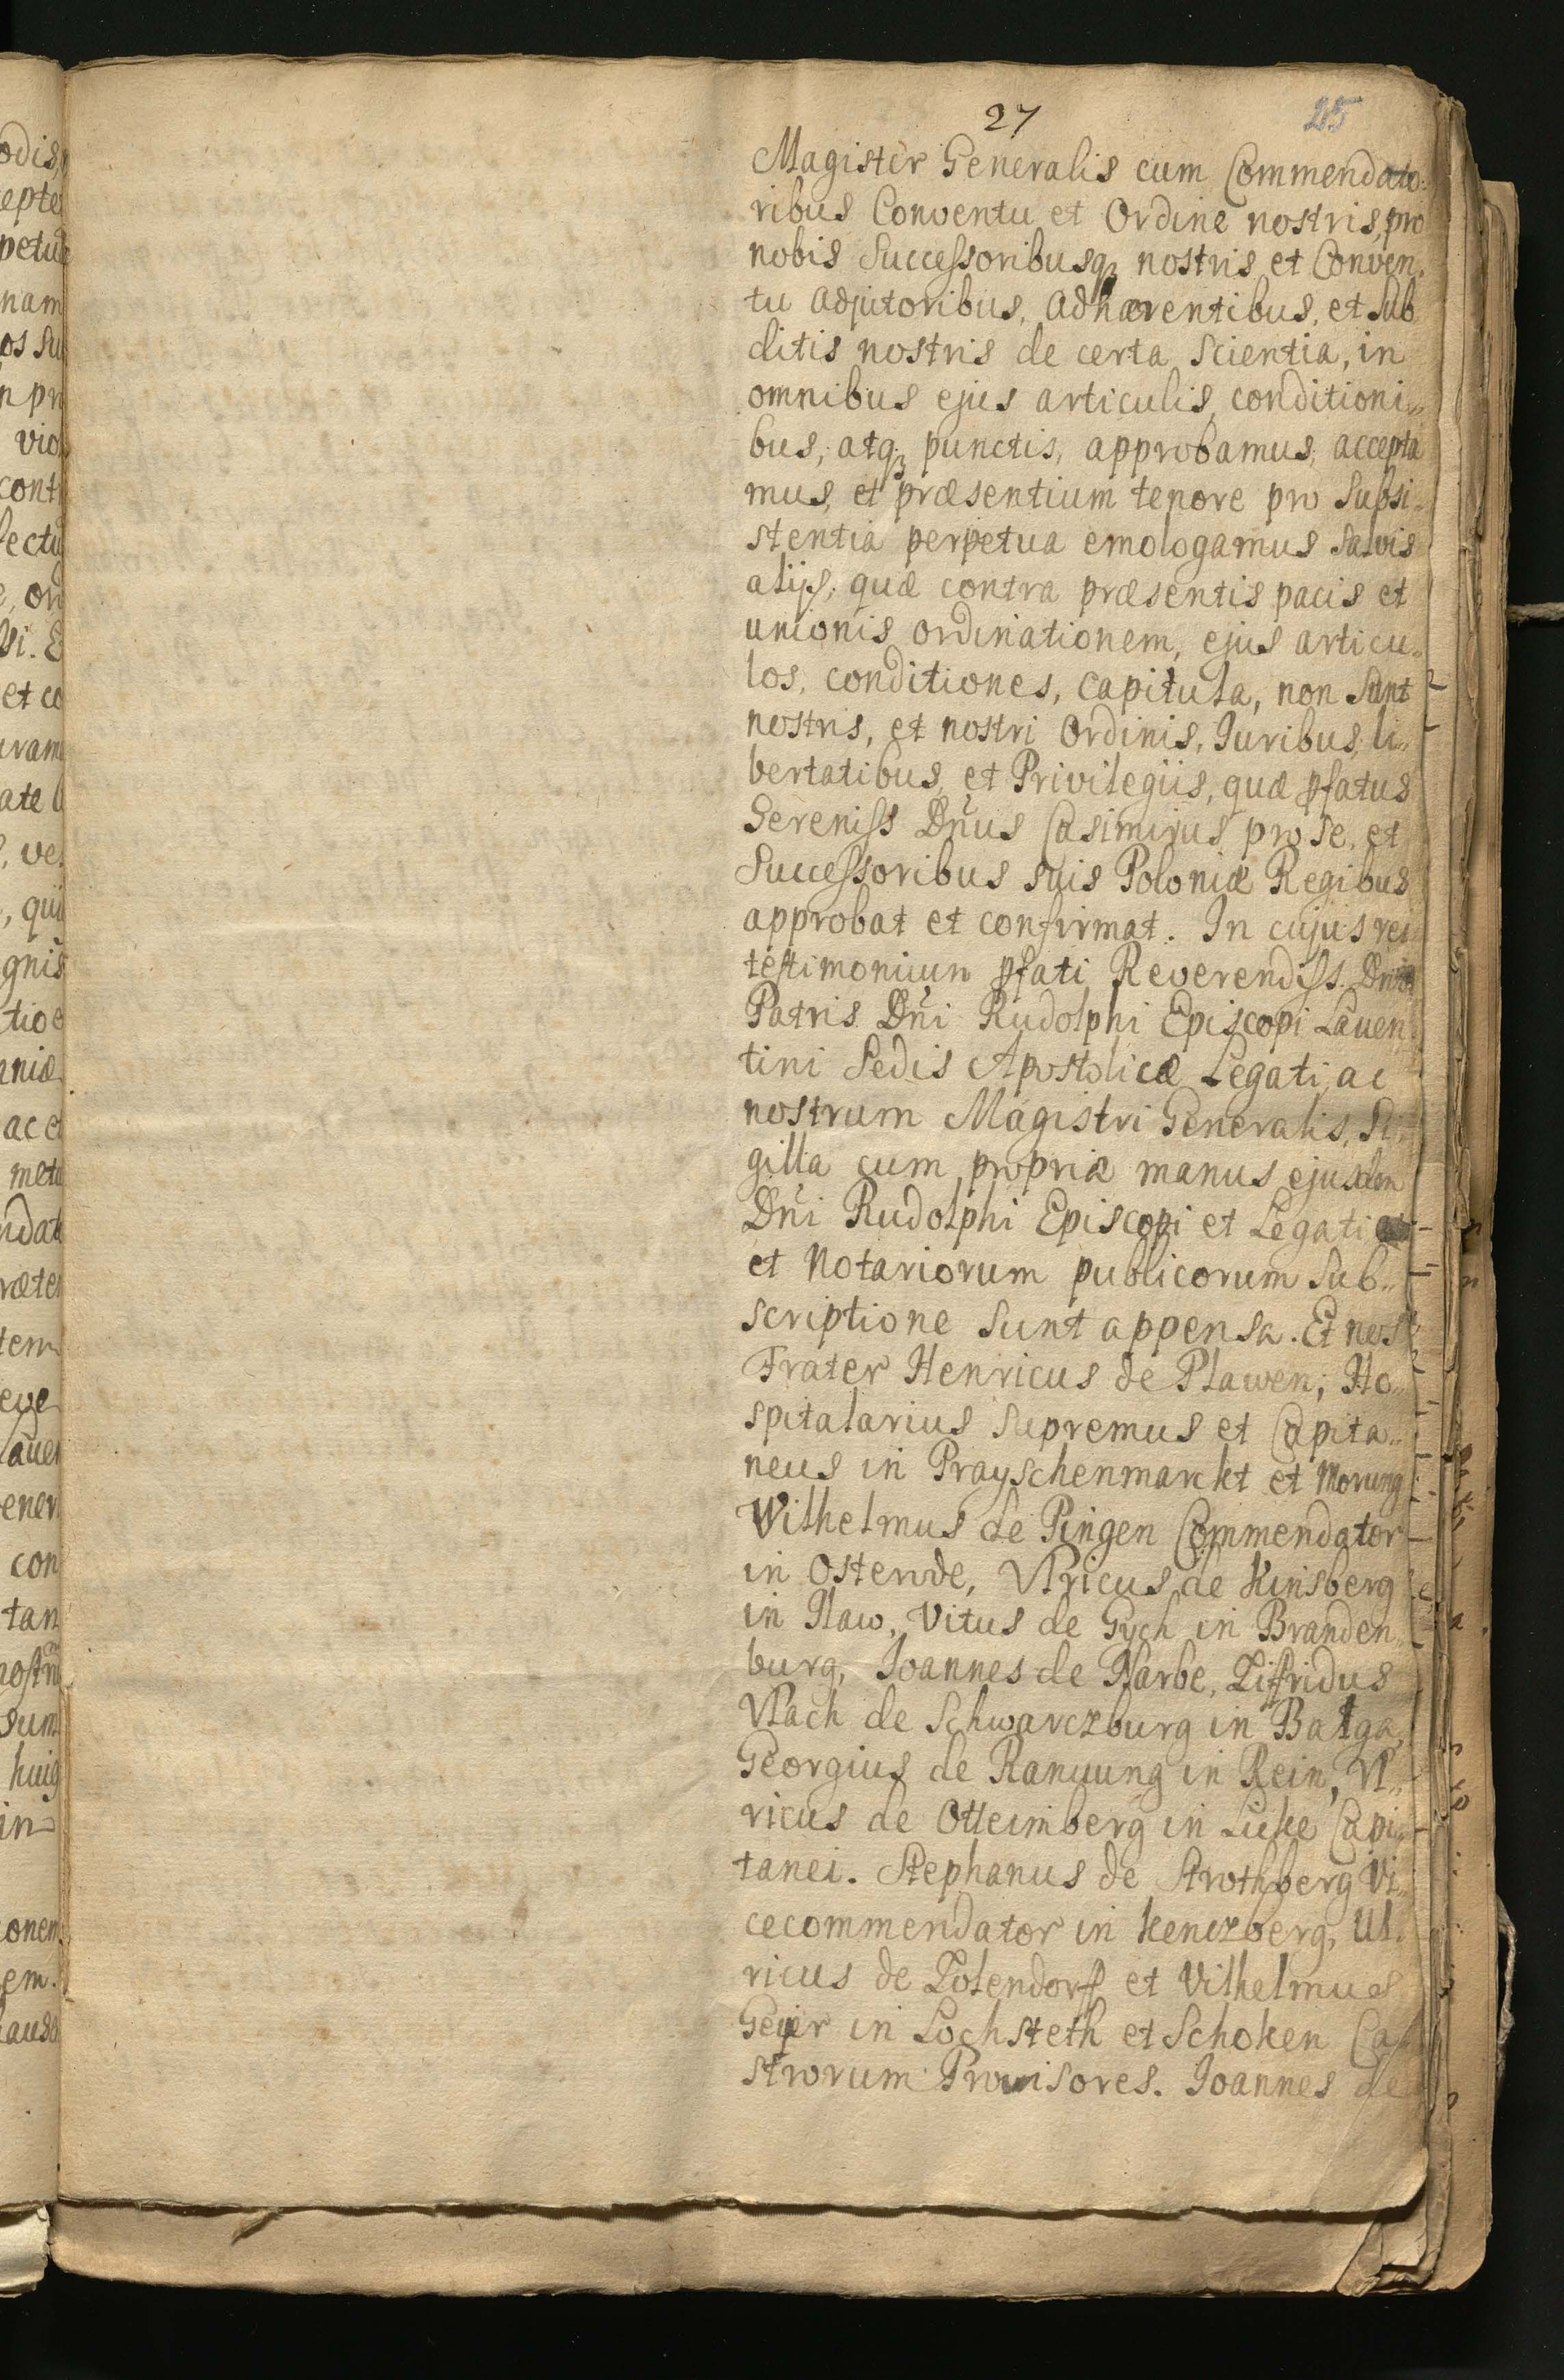 27 25
Magister Generalis cum Commendato:
ribus Conventu et Ordine nostris, pro
nobis Successoribusq₃ nostris et Conven.
tu adjutoribus, adhærentibus, et sub
ditis nostris de certa scientia, in
omnibus ejus articulis, conditioni„
bus, atq₃ punctis, approbamus, accepta
mus, et præsentium tenore pro subsi„
stentia perpetua emologamus salvis
alijs, quæ contra præsentis pacis et
unionis ordinationem, ejus articu„
los, conditiones, capitula, non sunt
nostris, et nostri Ordinis, Juribus, li„
bertatibus, et Privilegiis, quæ pfatus
Sereniss Dn̄us Casimirus pro se, et
Successoribus suis Poloniæ Regibus
approbat et confirmat. In cujus rei
testimonium pfati Reverendiss.
Patris Dn̄i Rudolphi Episcopi Laven
tini Sedis Apostolicæ Legati, ac
nostrum Magistri Generalis, Si„
gilla cum propriæ manus ejusdem
Dn̄i Rudolphi Episcopi et Legati
et Notariorum publicorum sub„
scriptione sunt appensa. Et nos
Frater Henricus de Plawen, Ho„
spitalarius supremus et Capita„
neus in Prayschenmarckt et Morung
Wilhelmus de Pingen Commendator
in Osterode, Vlricus de Kinsberg
in Ilaw, Vitus de Gych in Branden„
burg, Joannes de Narbe, Zifridus
Vlach de Schwarczburg in Balga,
Georgius de Ranuung in Rein, Vl„
ricus de Otteimberg in Licke Capi„
tanei. Stephanus de Strothberg Vi„
cecommendator in Kenczberg, Ul.
ricus de Zolendorff et Vilhelmus
Geyer in Lochsteth et Schoken Ca
strorum Provisores. Joannes de